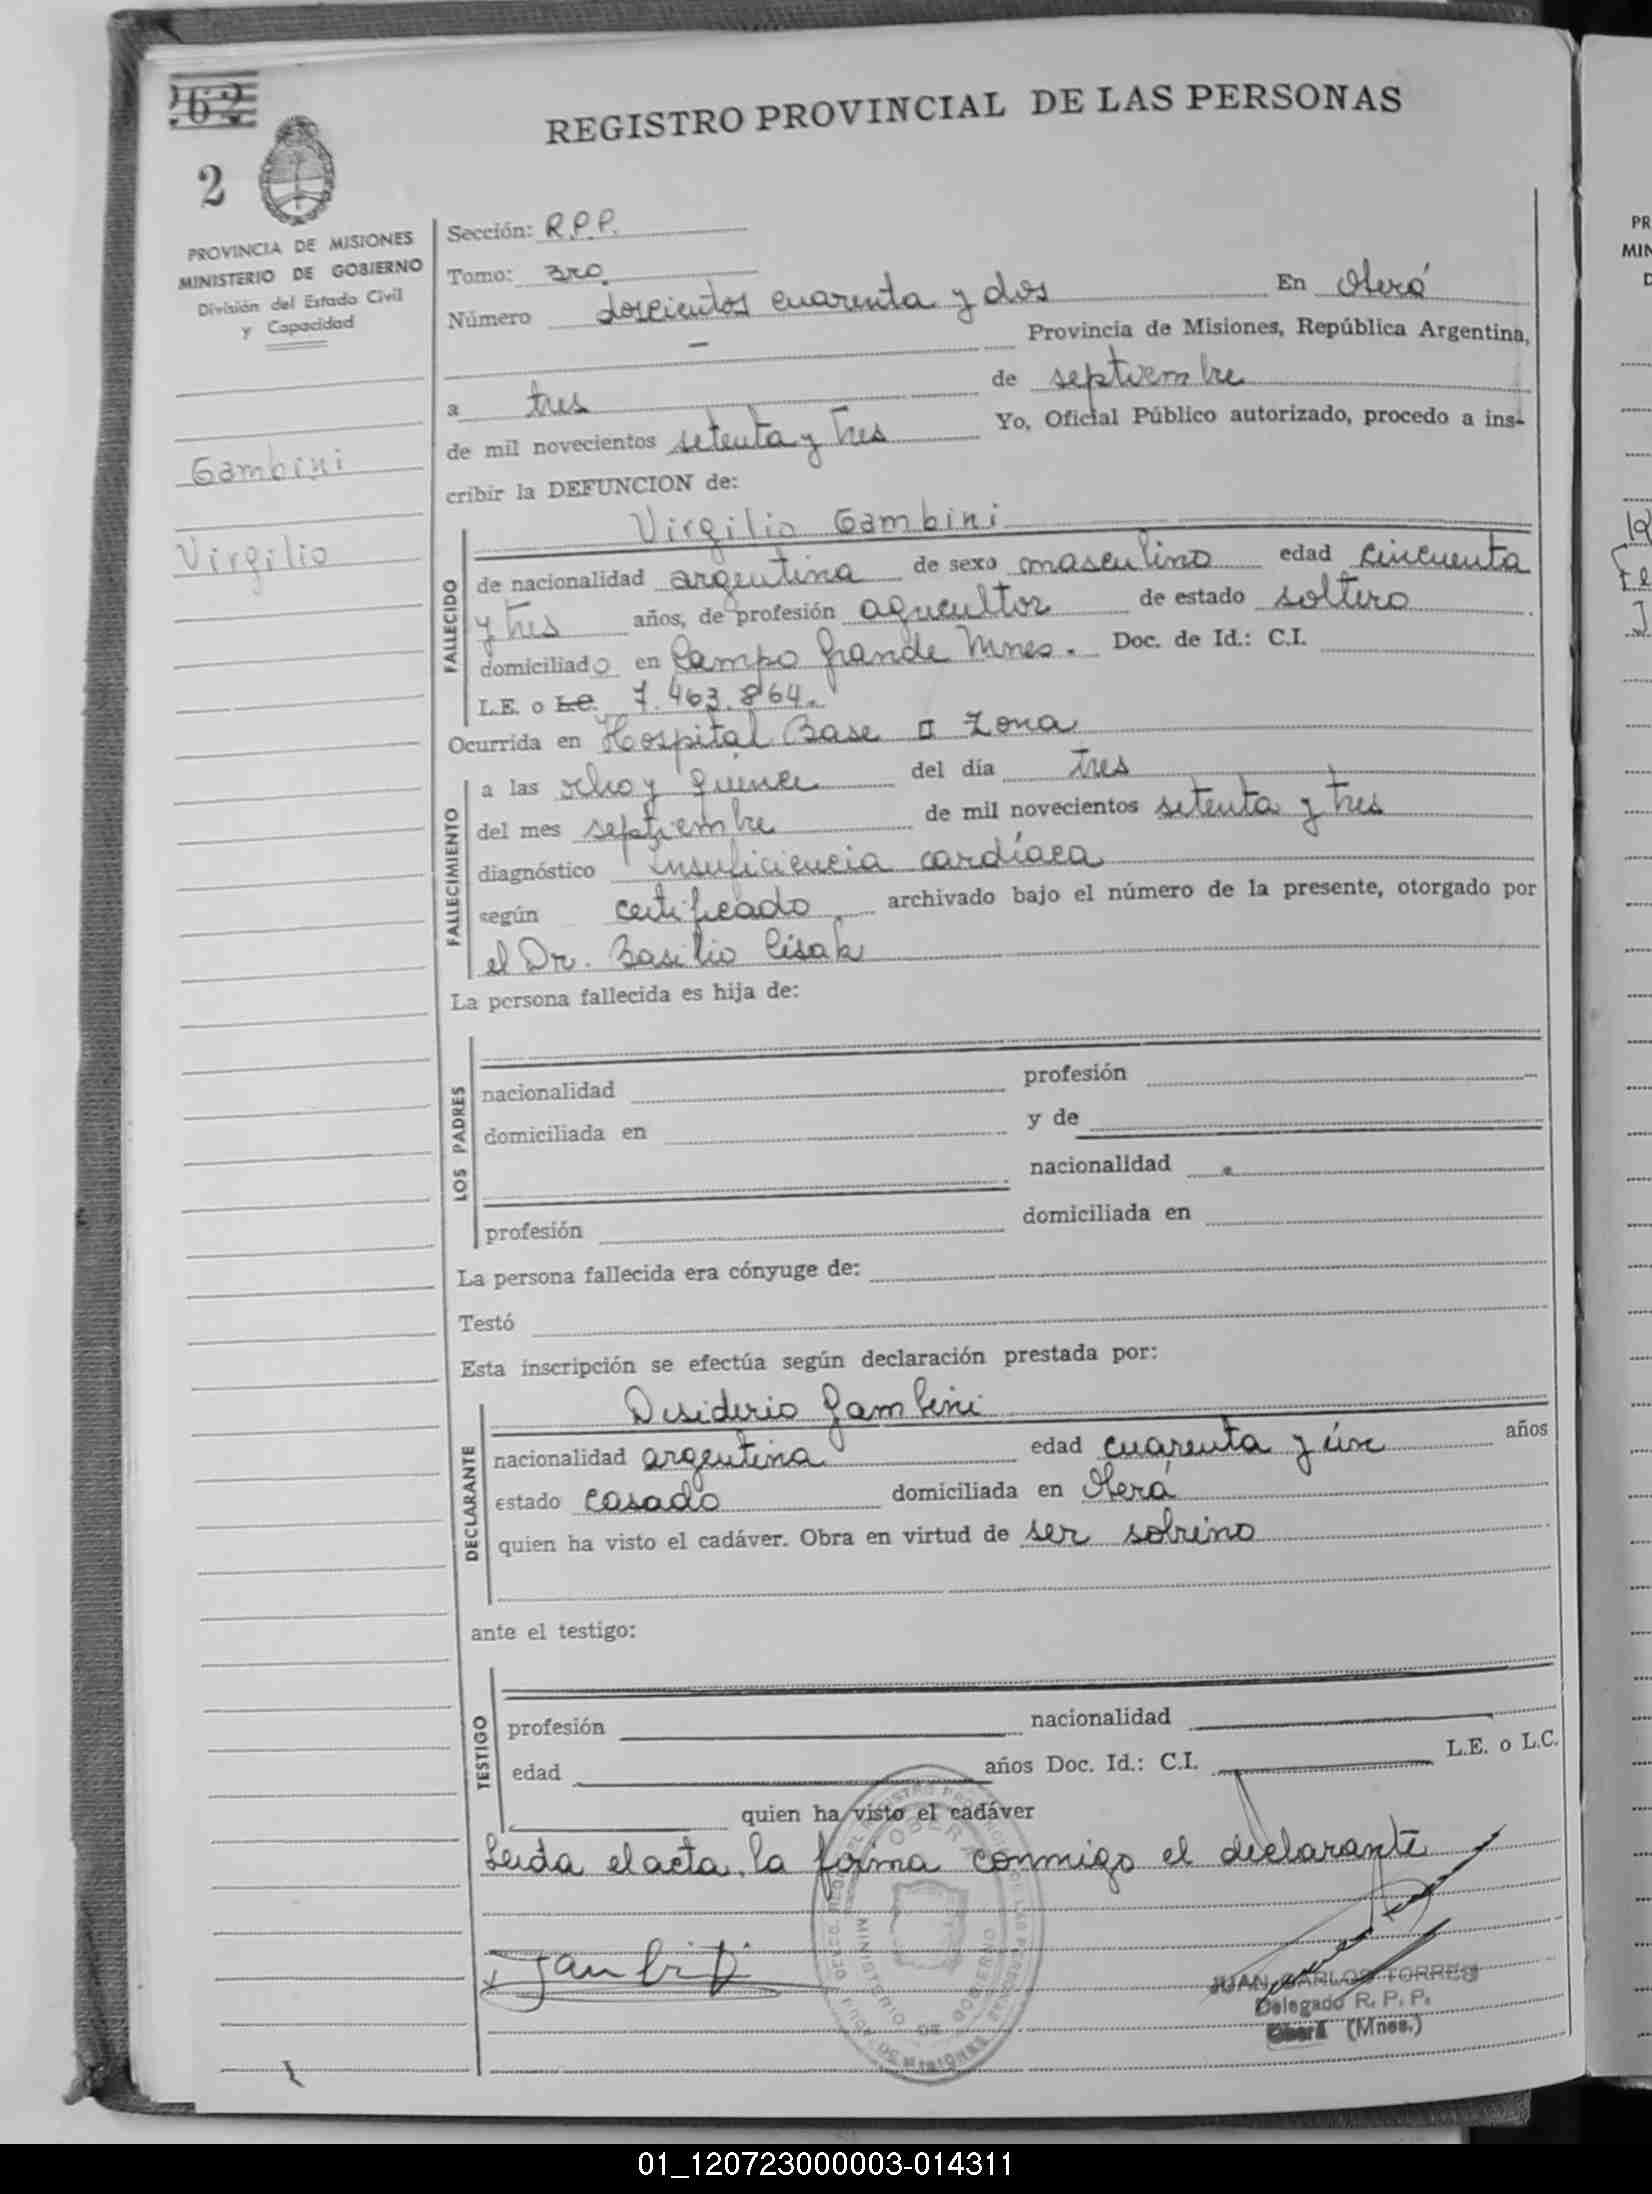 262
REGISTRO PROVINCIAL DE LAS PERSONAS
2
PROVINCIA DE MISIONES
MINISTERIO DE GOBIERNO
División del Estado Civil
y Capacidad
Gambini
Virgilio
Sección: R.P.P.
Tomo: 3ro.
Número doscientos cuarenta y dos En Oberá
— Provincia de Misiones, República Argentina,
a tres de septiembre
de mil novecientos setenta y tres Yo, Oficial Público autorizado, procedo a ins-
cribir la DEFUNCION de:
Virgilio Gambini
FALLECIDO
de nacionalidad argentina de sexo masculino edad cincuenta
y tres años, de profesión agricultor de estado soltero
domiciliado en Campo Grande Mnes. Doc. de Id.: C.I.
L.E. o L.C. 7.463.864.
Ocurrida en Hospital Base II Zona
FALLECIMIENTO
a las ocho y quince del día tres
del mes septiembre de mil novecientos setenta y tres
diagnóstico insuficiencia cardíaca
según certificado archivado bajo el número de la presente, otorgado por
el Dr. Basilio Cisak
La persona fallecida es hija de:
LOS PADRES
nacionalidad profesión
domiciliada en y de
nacionalidad
profesión domiciliada en
La persona fallecida era cónyuge de:
Testó
Esta inscripción se efectúa según declaración prestada por:
Desiderio Gambini
DECLARANTE
nacionalidad argentina edad cuarenta y un años
estado casado domiciliada en Oberá
quien ha visto el cadáver. Obra en virtud de ser sobrino
ante el testigo:
TESTIGO
profesión nacionalidad
edad años Doc. Id.: C.I. L.E. o L.C.
quien ha visto el cadáver
Leida el acta, la firma conmigo el declarante
JUAN CARLOS TORRES
Delegado R. P. P.
Oberá (Mnes.)
OBERA
MINISTERIO DE GOBIERNO
01_120723000003-014311